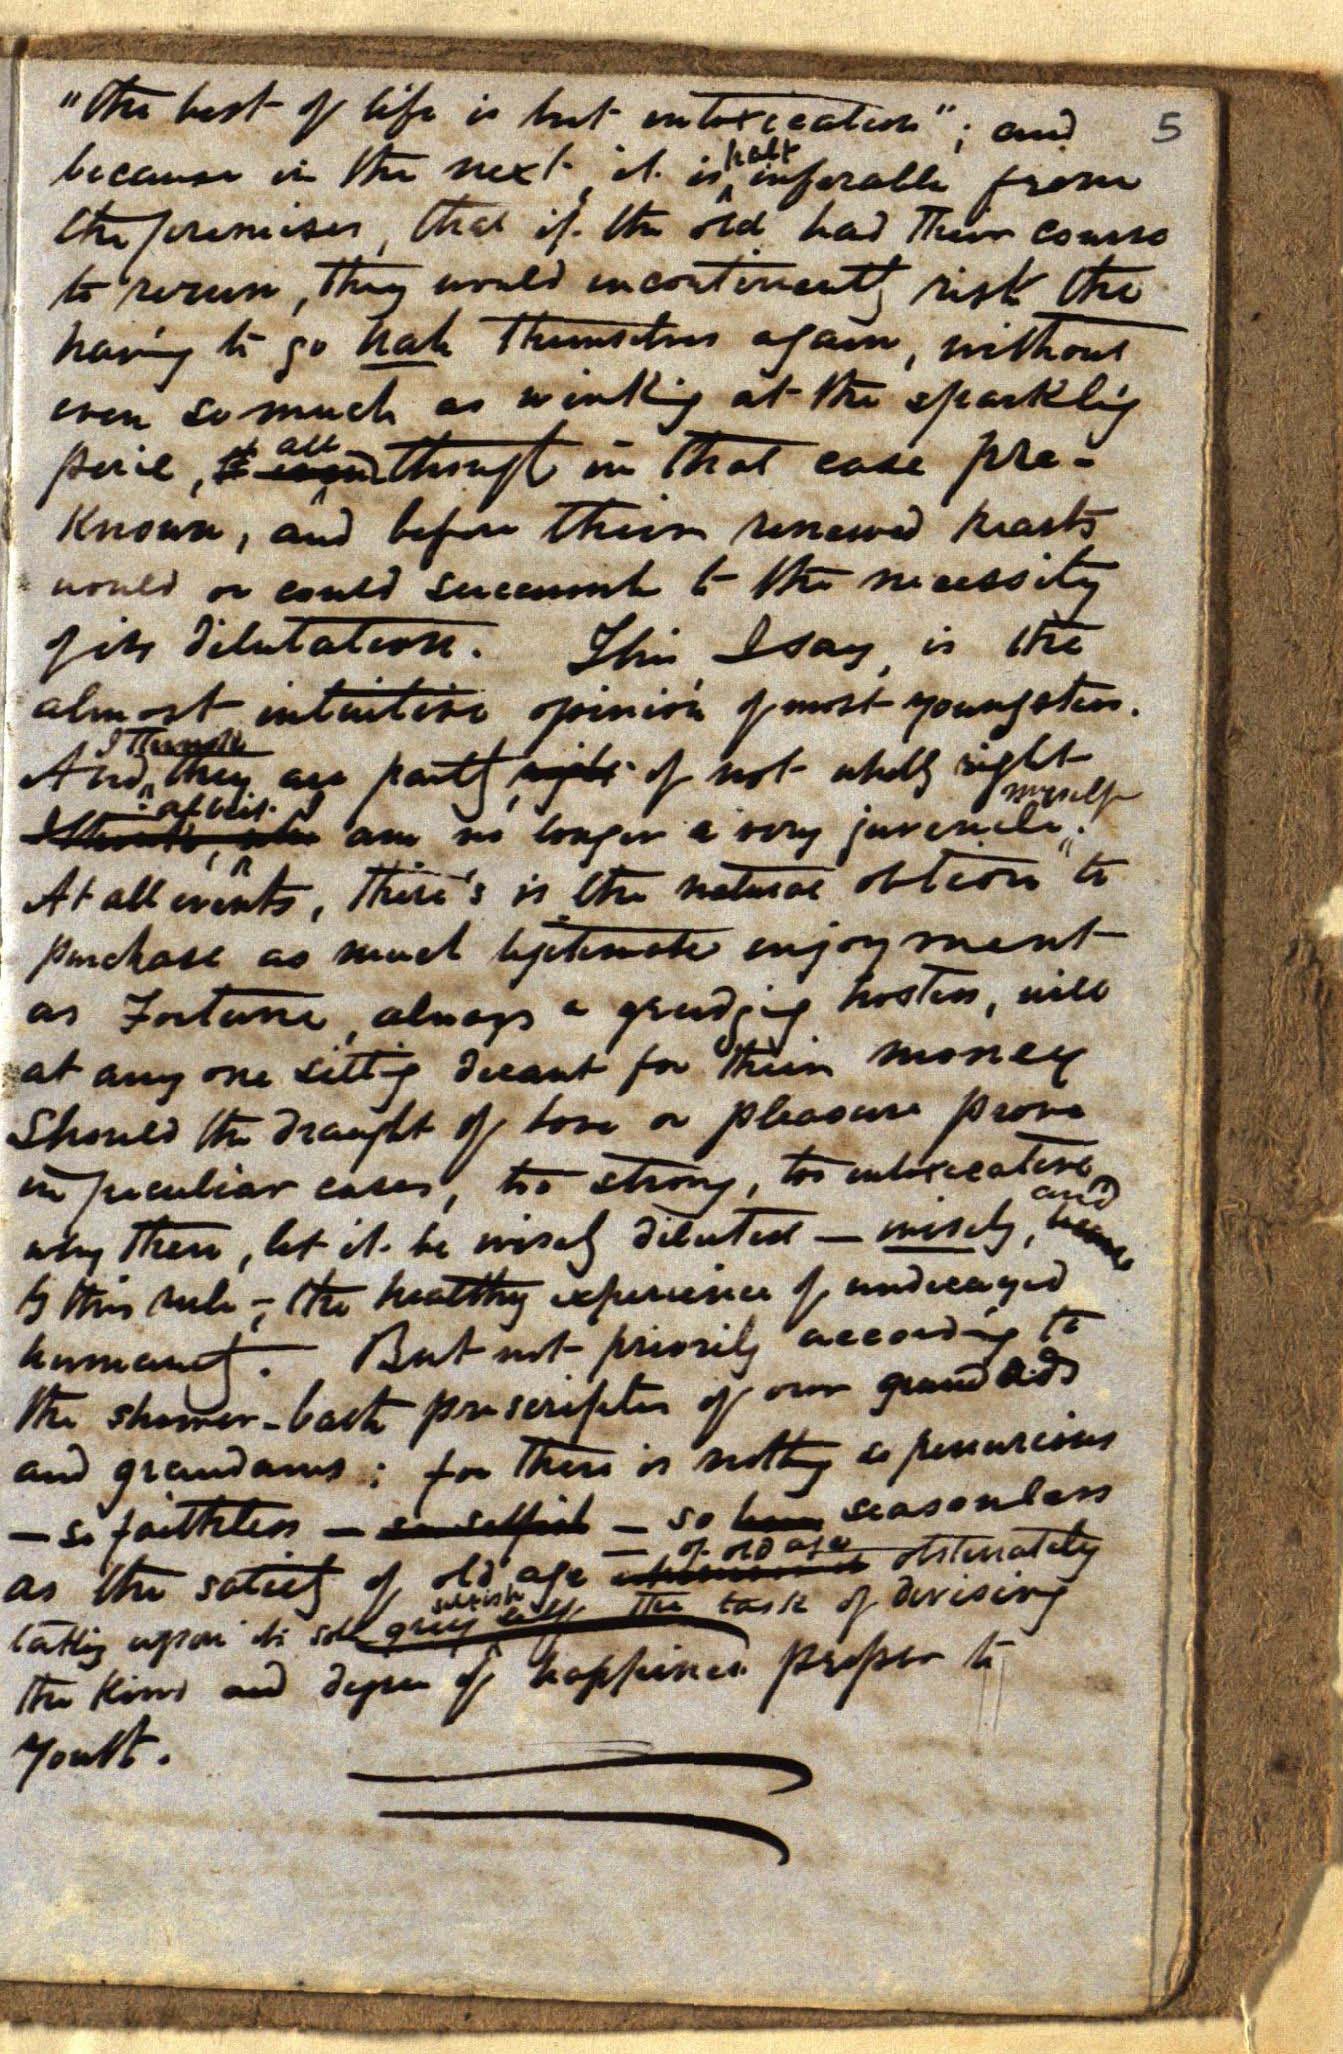 "the best of life is but intoxication"; and 5
because in the next, it is half inferable from
the premises, that if the old had their course
to rerun, they would incontinently risk the
having to go hale themselves again, without
even so much as winking at the sparklig
peril, all though in that case pre-
known, and before their renewed hearts
would or could succumb to the necessity
of its dilutation. This, I say, is the
almost intuitive opinion of most youngsters.
And, I think they are partly, right if not wholly right
I think, albeit I am no longer a very juvenile myself.
At all events, there's is the natural obtion to
purchase as much legitimate enjoyment
as Fortune, always a grudging hostess, will
at any one sittig decant for their money
Should the draught of love or pleasure prove
in peculiar cases, too strong, too intoxicative
why then, let it be wisely diluted — wisely, and
by this rule, – the healthy experience of undecayed
humanity. But not priorily according to
the shower-bath prescription of our grandads
and grandams; for there is nothing so penurious
— so faithless — so selfish — so seasonless
as the satiety of old age — of old age obstinately
taking upon its selfish grey self the task of devising
the kind and degree of happiness proper to
youth.